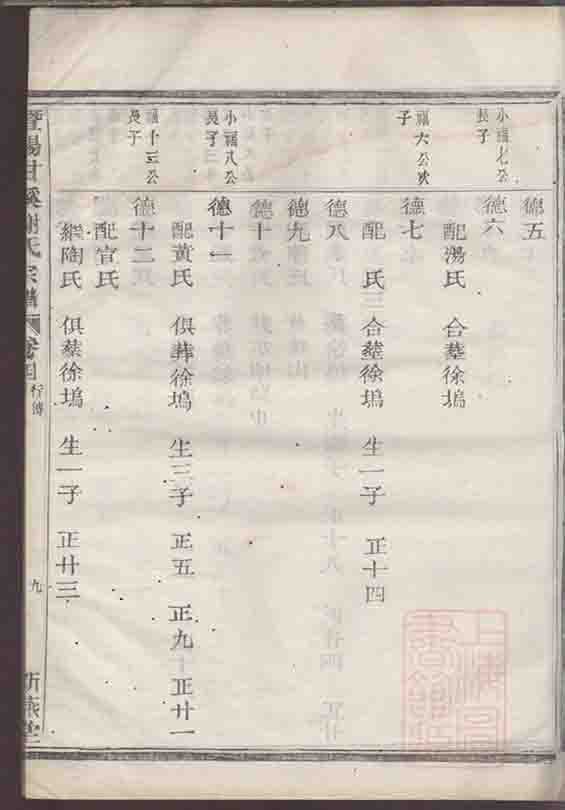 德五
小福七公
長子
德六
配湯氏 合塟徐塢
福六公次
子
德七
配 氏 合塟徐塢 生一子 正十四
德八
德九
德十
小福八公
長子
德十一
配黃氏 俱葬徐塢 生三子 正五 正九 正廿一
福十三公
長子
德十二
配官氏
繼陶氏 俱塟徐塢 生一子 正廿三
暨陽甘溪謝氏宗譜 行傳 九